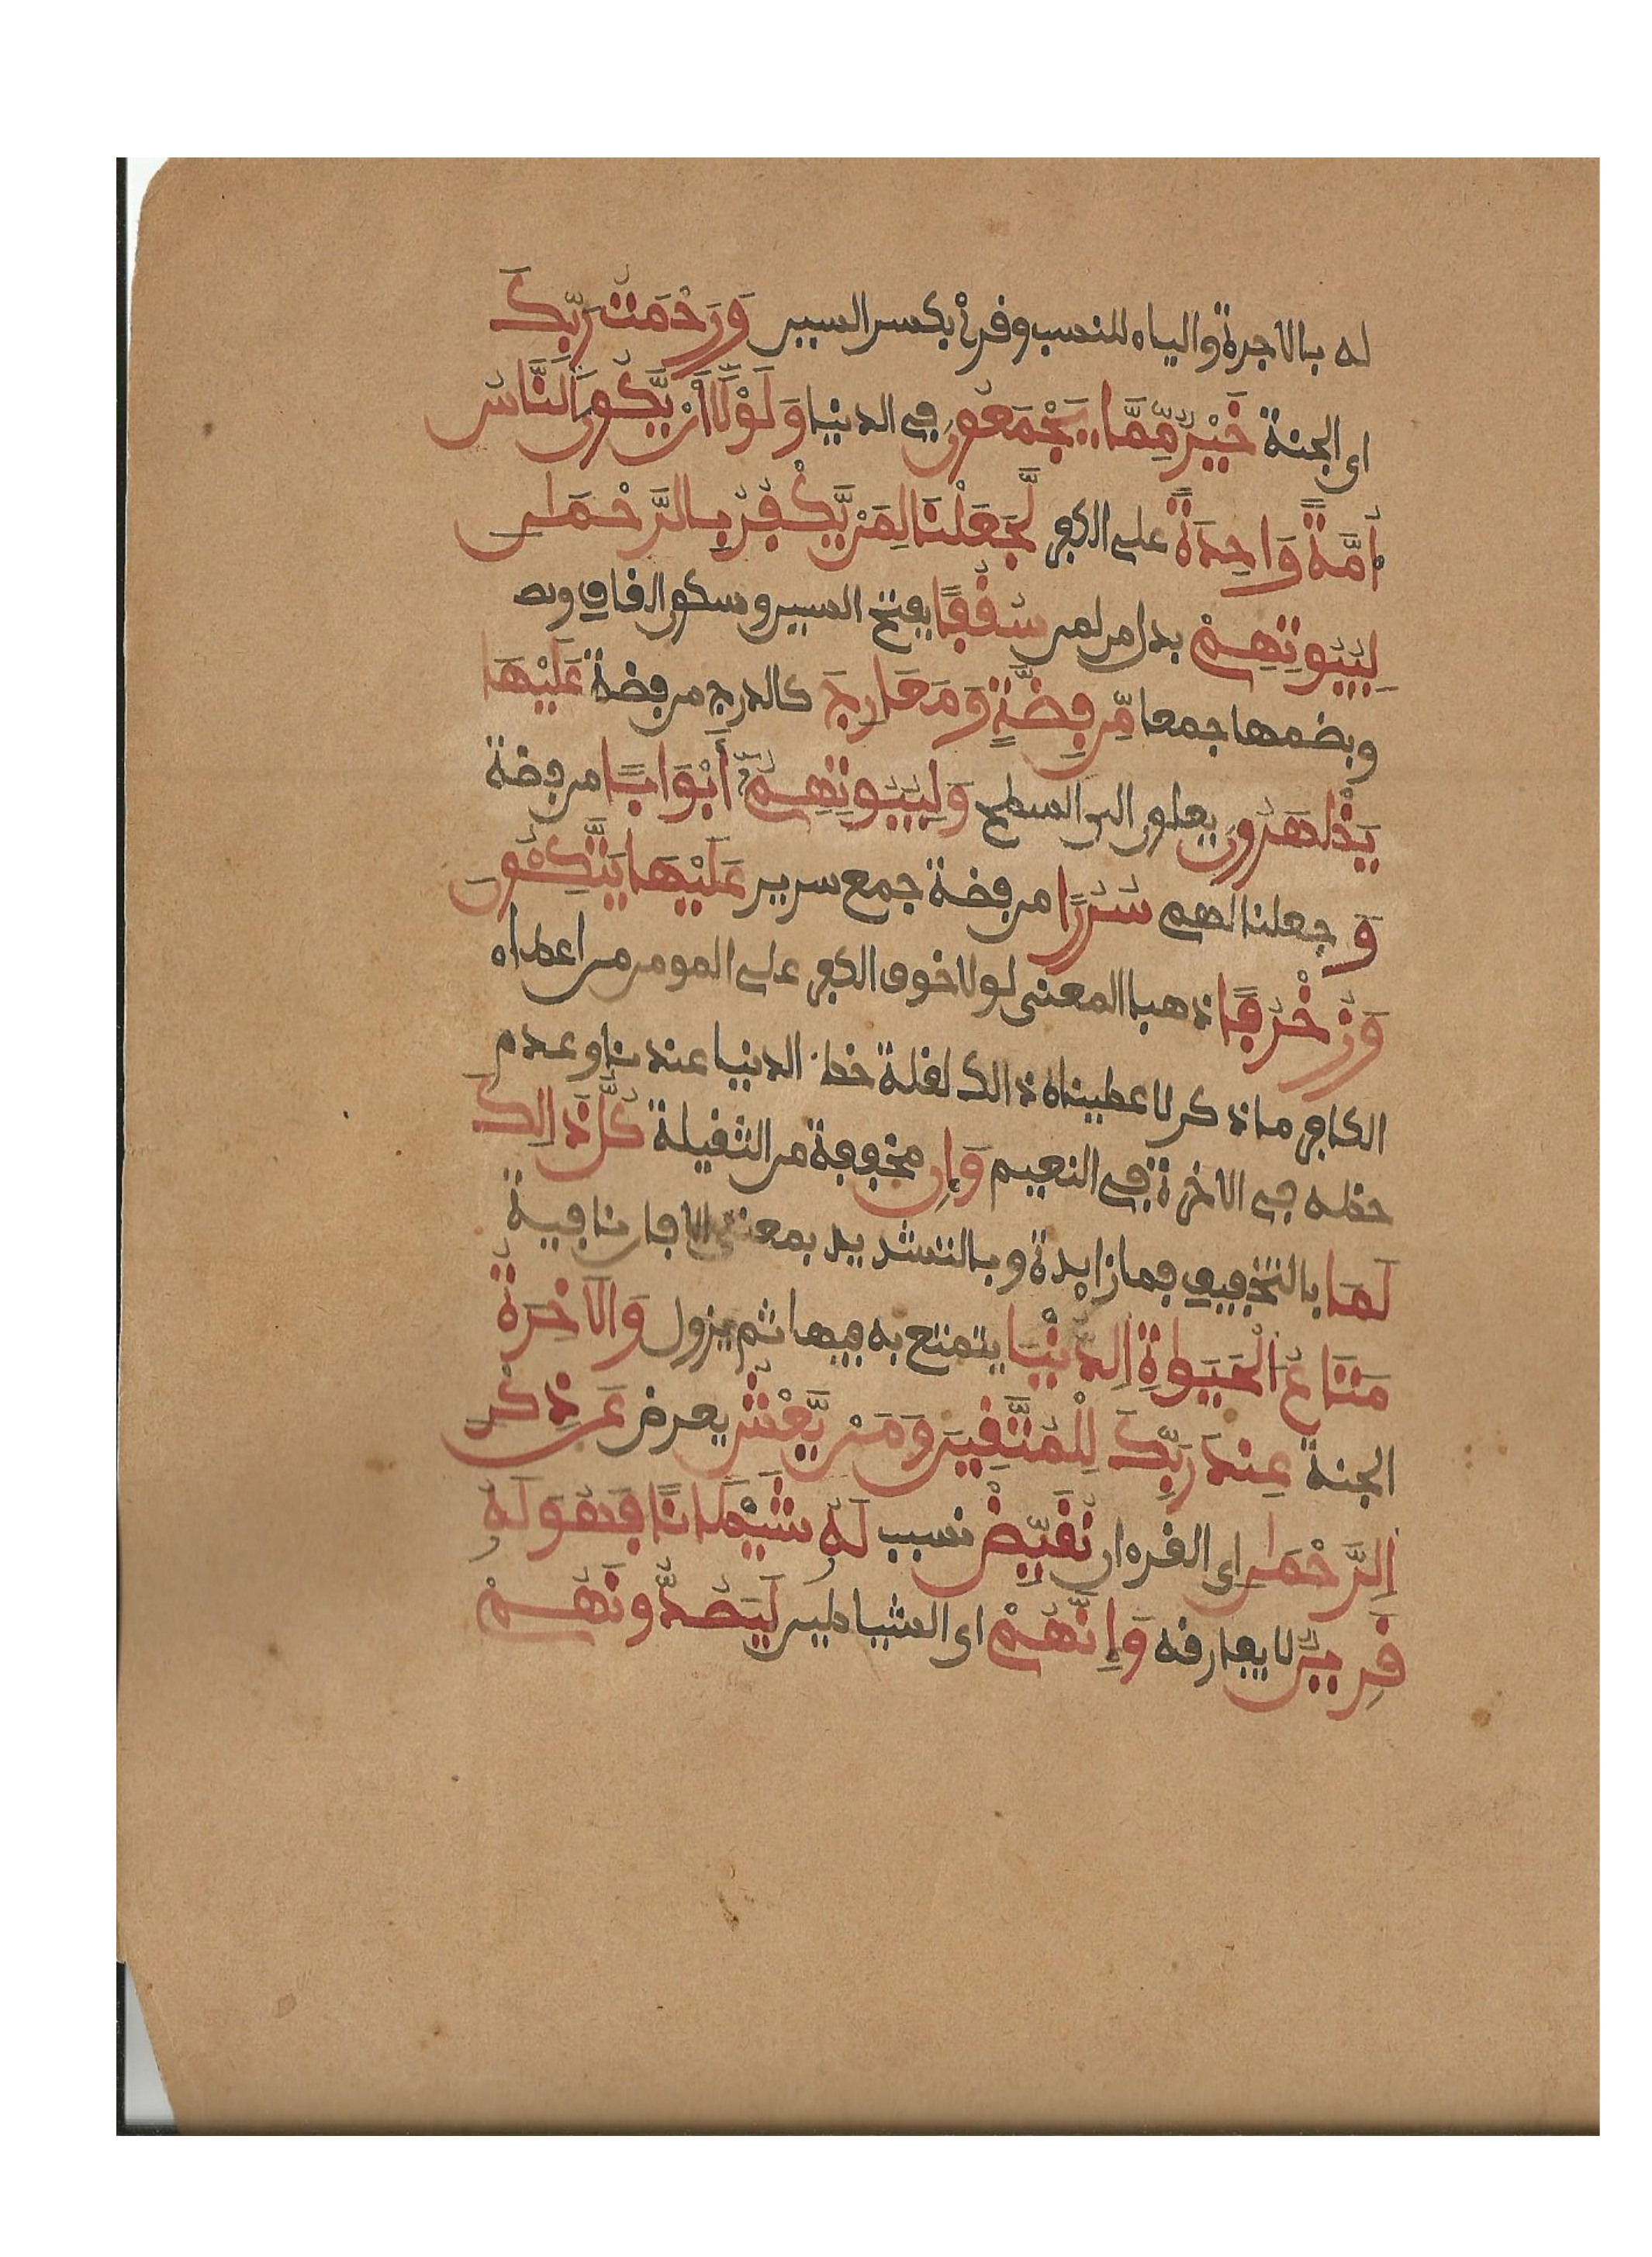 له بالاجرة والياء للنسب وقرئ بكسر السين وَرَحْمَتُ رَبِّكَ
اى الجنة خَيْرٌ مِّمَّا يَجْمَعُونَ في الدنيا وَلَوْلَا أَنْ يَّكُونَ اَلنَّاسُ
أُمَّةً وَاحِدَةً على الكفر لَّجَعَلْنَا لِمَنْ يَّكْفُرُ بِالرَّحْمَنِ
لِبُيُوتِهِمْ بدل من لمن سَقْفًا بفتح السين وسكون القاف وبض
وبضمها جمعا مِّن فِضَّةٍ وَمَعَارِجَ كالدرج من فضة عَلَيْهَا
يَظْهَرُونَ يعلون الى السطح وَلِبُيُوتِهِمُ أَبْوَابًا من فضة
وَ جعلنا لهم سُرُرًا من فضة جمع سرير عَلَيْهَا يَتَّكِـُٔونَ
وَزُخْرُفًا ذهبا المعنى لولا خوف الكفر على المومن من اعطاء
الكافر ما ذكر لاعطيناه ذالك لقلة خطر الدنيا عندنا وعدم
حظه في الاخرة في النعيم وَإِن مخففة من الثقيلة كُلُّ ذَالِكَ
لَمَا بالتخفيف فما زايدة وبالتشديد بمعنى الا فان نافية
مَتَاعُ اُلْحَيَوٰةِ اِلدُّنْيَا يتمتع به فيها ثم يزول وَالَاخِرَةُ
الجنة عِندَ رَبِّكَ لِلْمُتَّقِينَ وَمَنْ يَّعْشُ يعرض عَن ذِكْرِ
اِلرَّحْمَنِ اى القرءان نُقَيِّضْ نسبب لَهُ شَيْطَانًا فَهُوَ لَهُ
قَرِينٌ لا يفارقه وَإِنَّهُمْ اى الشياطين لَيَصُدُّونَهُمْ